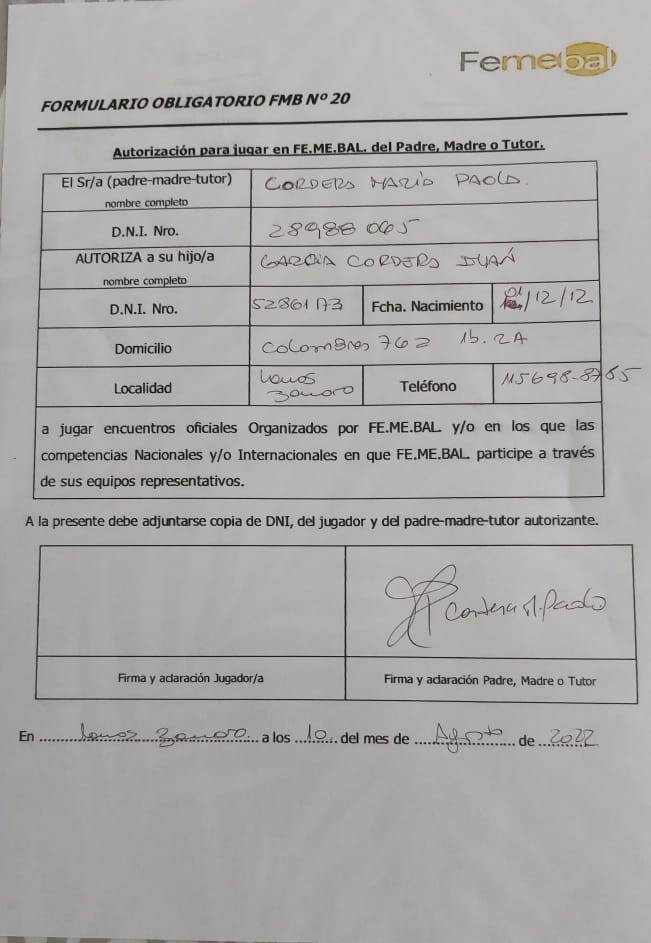 Femebal
FORMULARIO OBLIGATORIO FMB Nº 20
Autorización para jugar en FE.ME.BAL. del Padre, Madre o Tutor.
El Sr/a (padre-madre-tutor) CORDERO MARIA PAOLA
nombre completo
D.N.I. Nro. 28988065
AUTORIZA a su hijo/a GARCIA CORDERO JUAN
nombre completo
D.N.I. Nro. 52861173 Fcha. Nacimiento /12/12
Domicilio Colombres 762 1b. 2A
Localidad Lomas Zamora Teléfono 115698-8765
a jugar encuentros oficiales Organizados por FE.ME.BAL. y/o en los que las
competencias Nacionales y/o Internacionales en que FE.ME.BAL. participe a través
de sus equipos representativos.
A la presente debe adjuntarse copia de DNI, del jugador y del padre-madre-tutor autorizante.
Cordera M. Paola
Firma y aclaración Jugador/a Firma y aclaración Padre, Madre o Tutor
En Lomas Zamora a los 10 del mes de Agosto de 2022